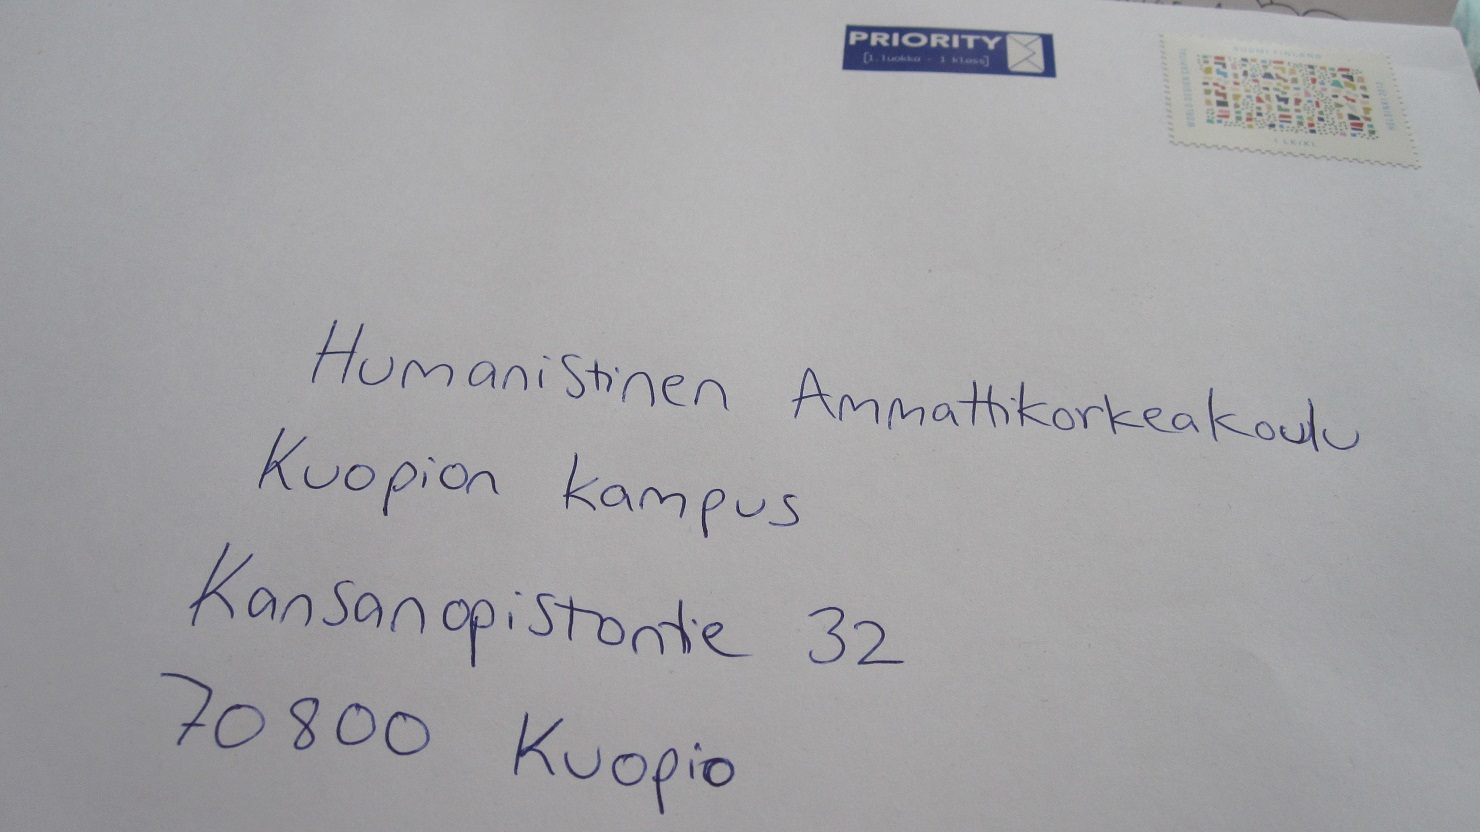 PRIORITY
[1.luokka - 1 klass]
SUOMI FINLAND
WORLD DESIGN CAPITAL
HELSINKI 2012
1 LK/KL
Humanistinen Ammattikorkeakoulu
Kuopion kampus
Kansanopistontie 32
70800 Kuopio